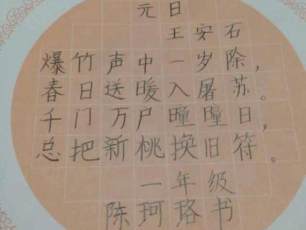 元日
王安石
爆竹声中一岁除，
春日送暖入屠苏。
千门万户曈曈日，
总把新桃换旧符。
一年级
陈珂珞书